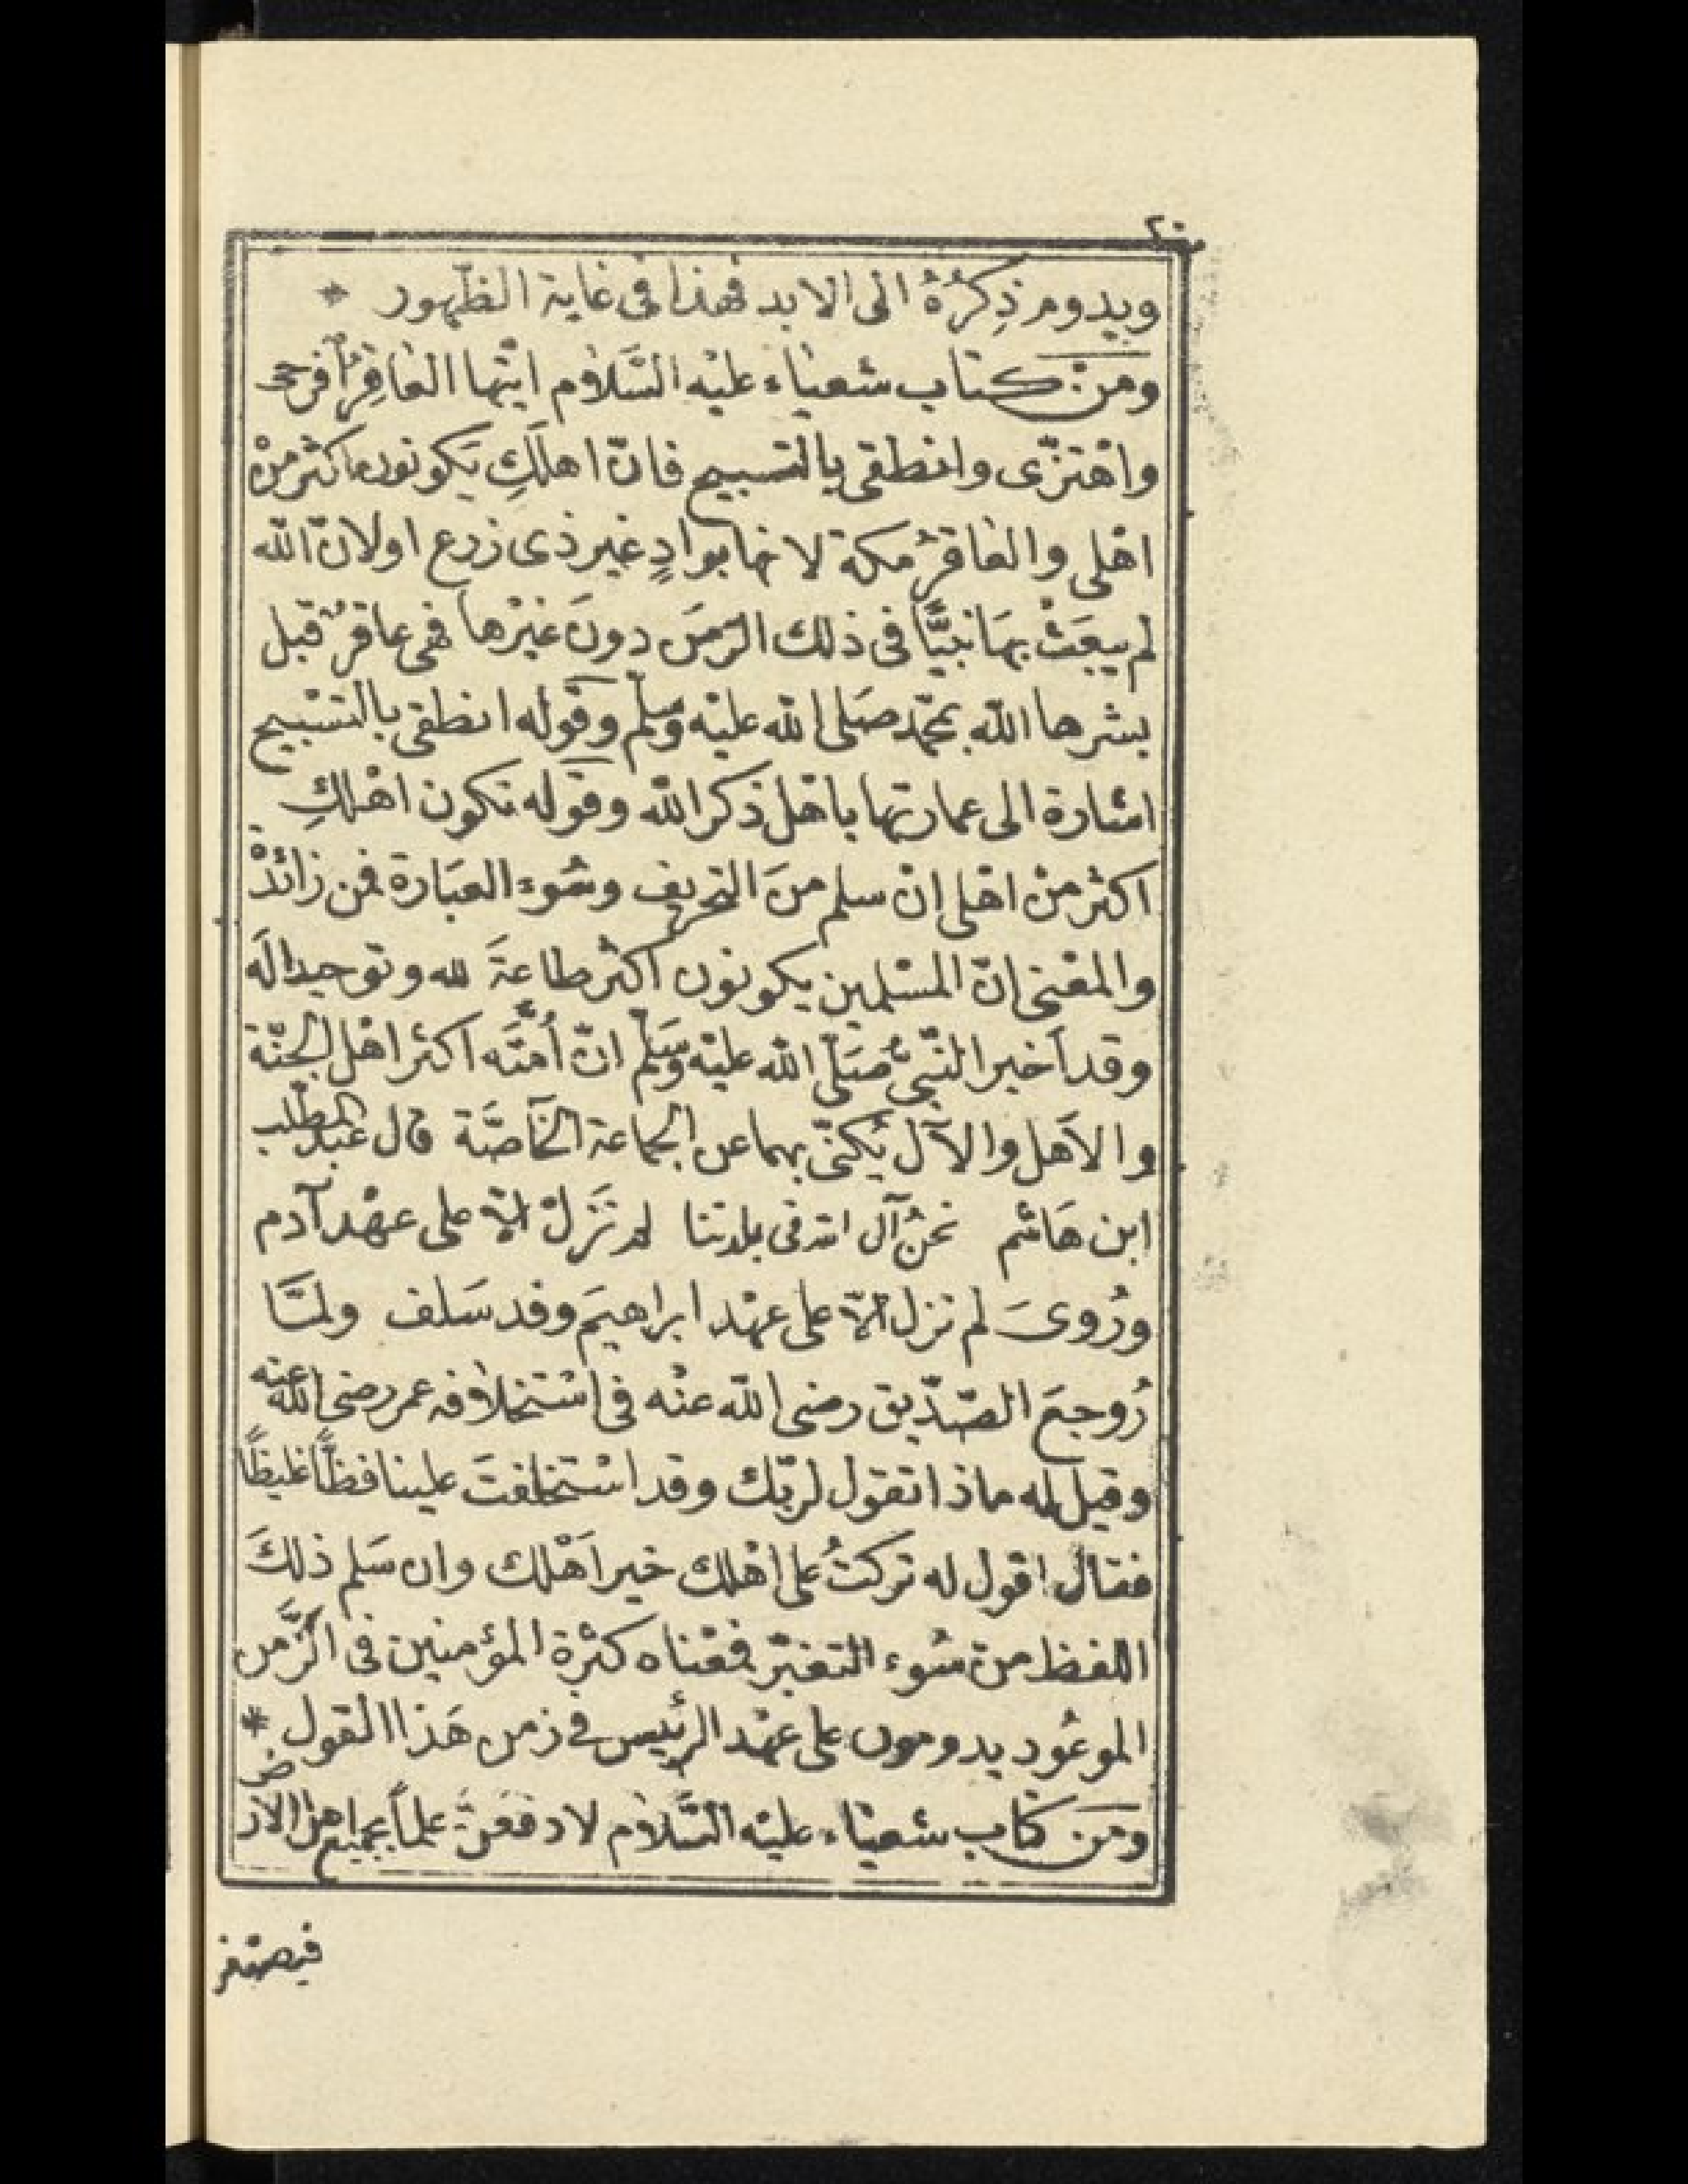 ٢٠
ويدوم ذِكرُهُ الى الابد فهذا فى غاية الظّهور *
ومن كتاب شعياء عليْه السَّلام ايّتها العَاقِرُ أفرحى
واهْتزّى وانطقى بالتسبيح فانّ اهلَكِ يَكونون اكثر منْ
اهْلى والعَاقرُ مكة لانها بوادٍ غير ذى زرع اولانّ الله
لم يبعَثْ بهَا نبيًّا فى ذلك الزمَن دونَ غيْرها فهى عاقرٌ قبل
بشرها الله بمحمّد صَلى الله عليْه وَسلّم وقوْله انطقى بالتسْبيح
اشارة الى عمارتها باهْل ذكر الله وقوْله تكون اهْلكِ
اكثر منْ اهْلى انْ سلم منَ التحريف وسُوء العبَارة فمن زائدْ
والمعْنى انّ المسْلمين يكونون اكثر طاعةَ لله وتوحيدا لَه
وقد أخبر النّبىُّ صَلّى الله عليْه وَسَلّم انّ أُمّتَه اكثر اهْل الجنّة
والاَهل والآل يُكنّى بهما عن الجماعة الخَاصَّة قال عبد المطّلب
ابن هَاشم نحْنُ آل الله فى بلدتنا لم نَزَلْ الاّ على عهْد آدم
ورُوىَ لم نزل الاّ على عهْد ابراهيمَ وقد سَلف ولمَّا
رُوجعَ الصّدّيق رضى الله عنْه فى اسْتخلافه عمر رضى الله عنه
وقيل له ماذا تقول لربّك وقد اسْتخلفتَ علينا فظّاً غليظًا
فقال اقول له تركتُ على اهْلك خير اَهْلك وان سَلم ذلكَ
اللفظ منْ سُوء التغيّر فمعْناه كثرة المؤمنين فى الزَّمن
الموعُود يدومون على عهْد الرئيس فى زمن هَذا القول *
ومن كتاب شعيَاء عليْه السَّلام لادفعَنَّ علماً بجميع اهل الارض
فيصفر